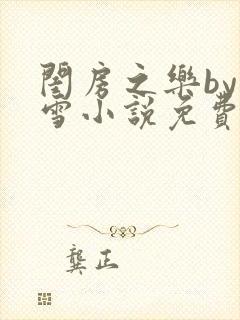 閨房之樂by
雪小說免費
龔正